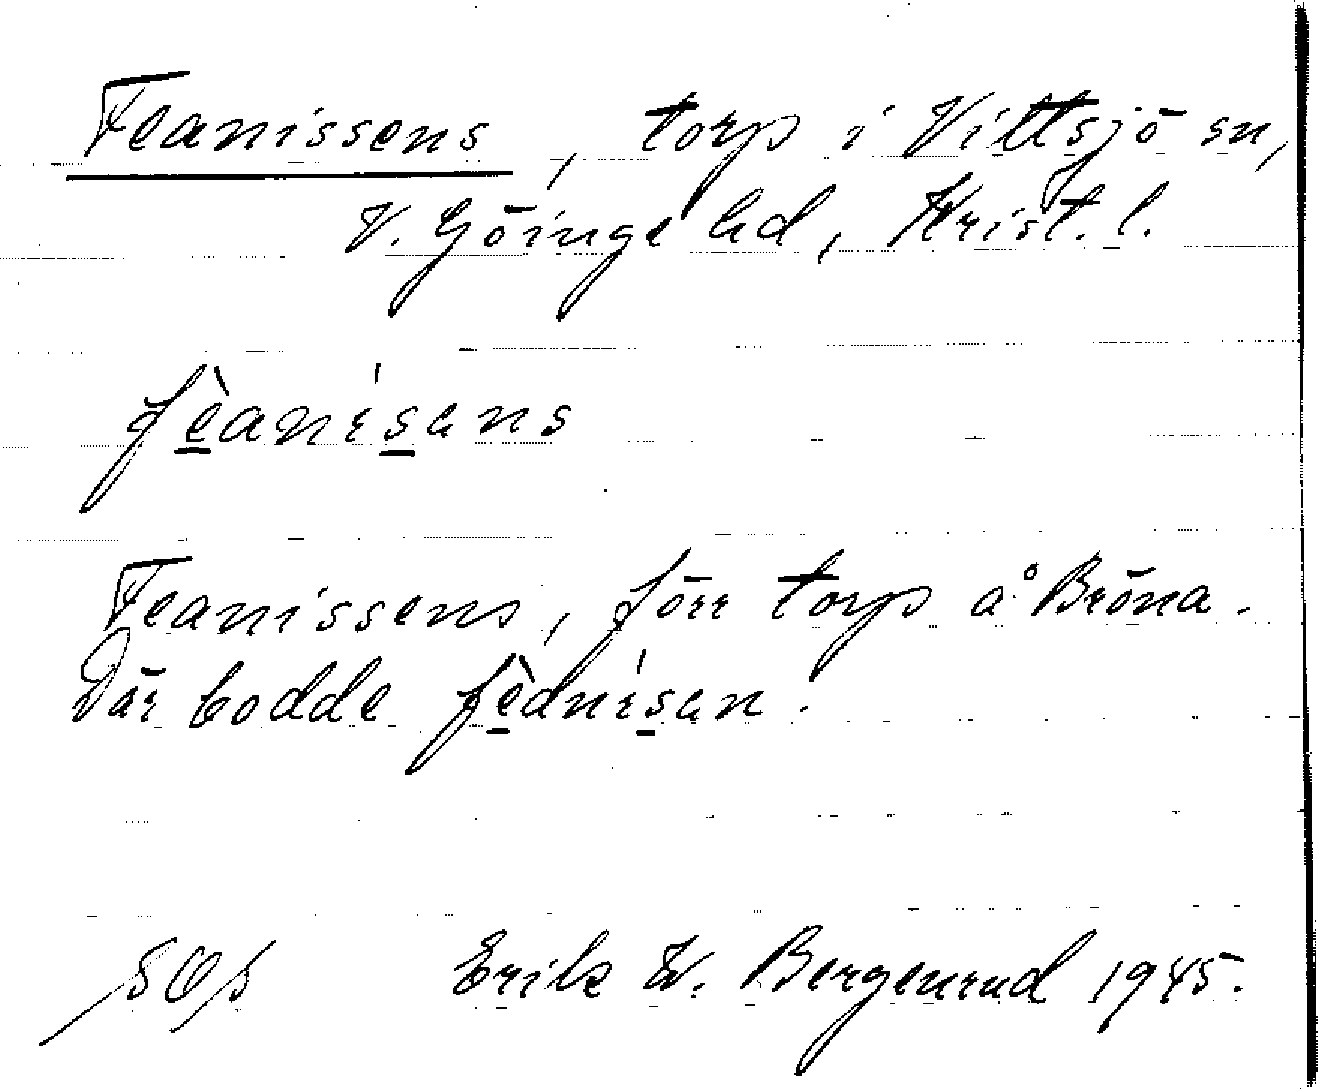 Feanissens, torp i Vittsjö sn,
V. Göinge hd, Krist. l.
fèanísens
Feanissens, förr torp å Bröna.
Där bodde fèanísen.
Erik W. Bergenrud 1945.